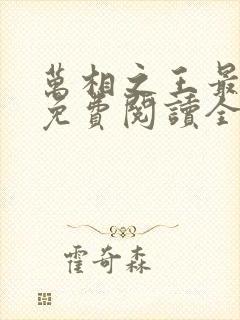 萬相之王最
免費閱讀全
霍奇森